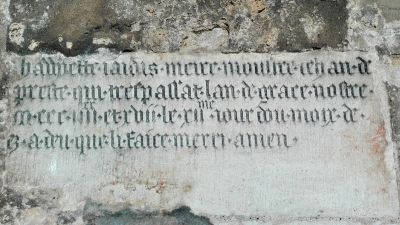 baduette · iadis · meire · moulire · iehan · de
preste · qui · trespassat · lan · de · grace · nostre ·
m · ccc · iiii xx · et · xvii · le · xii me · iour · dou · moix · de ·
· a · deu · que · li · faice · merci · amen ·